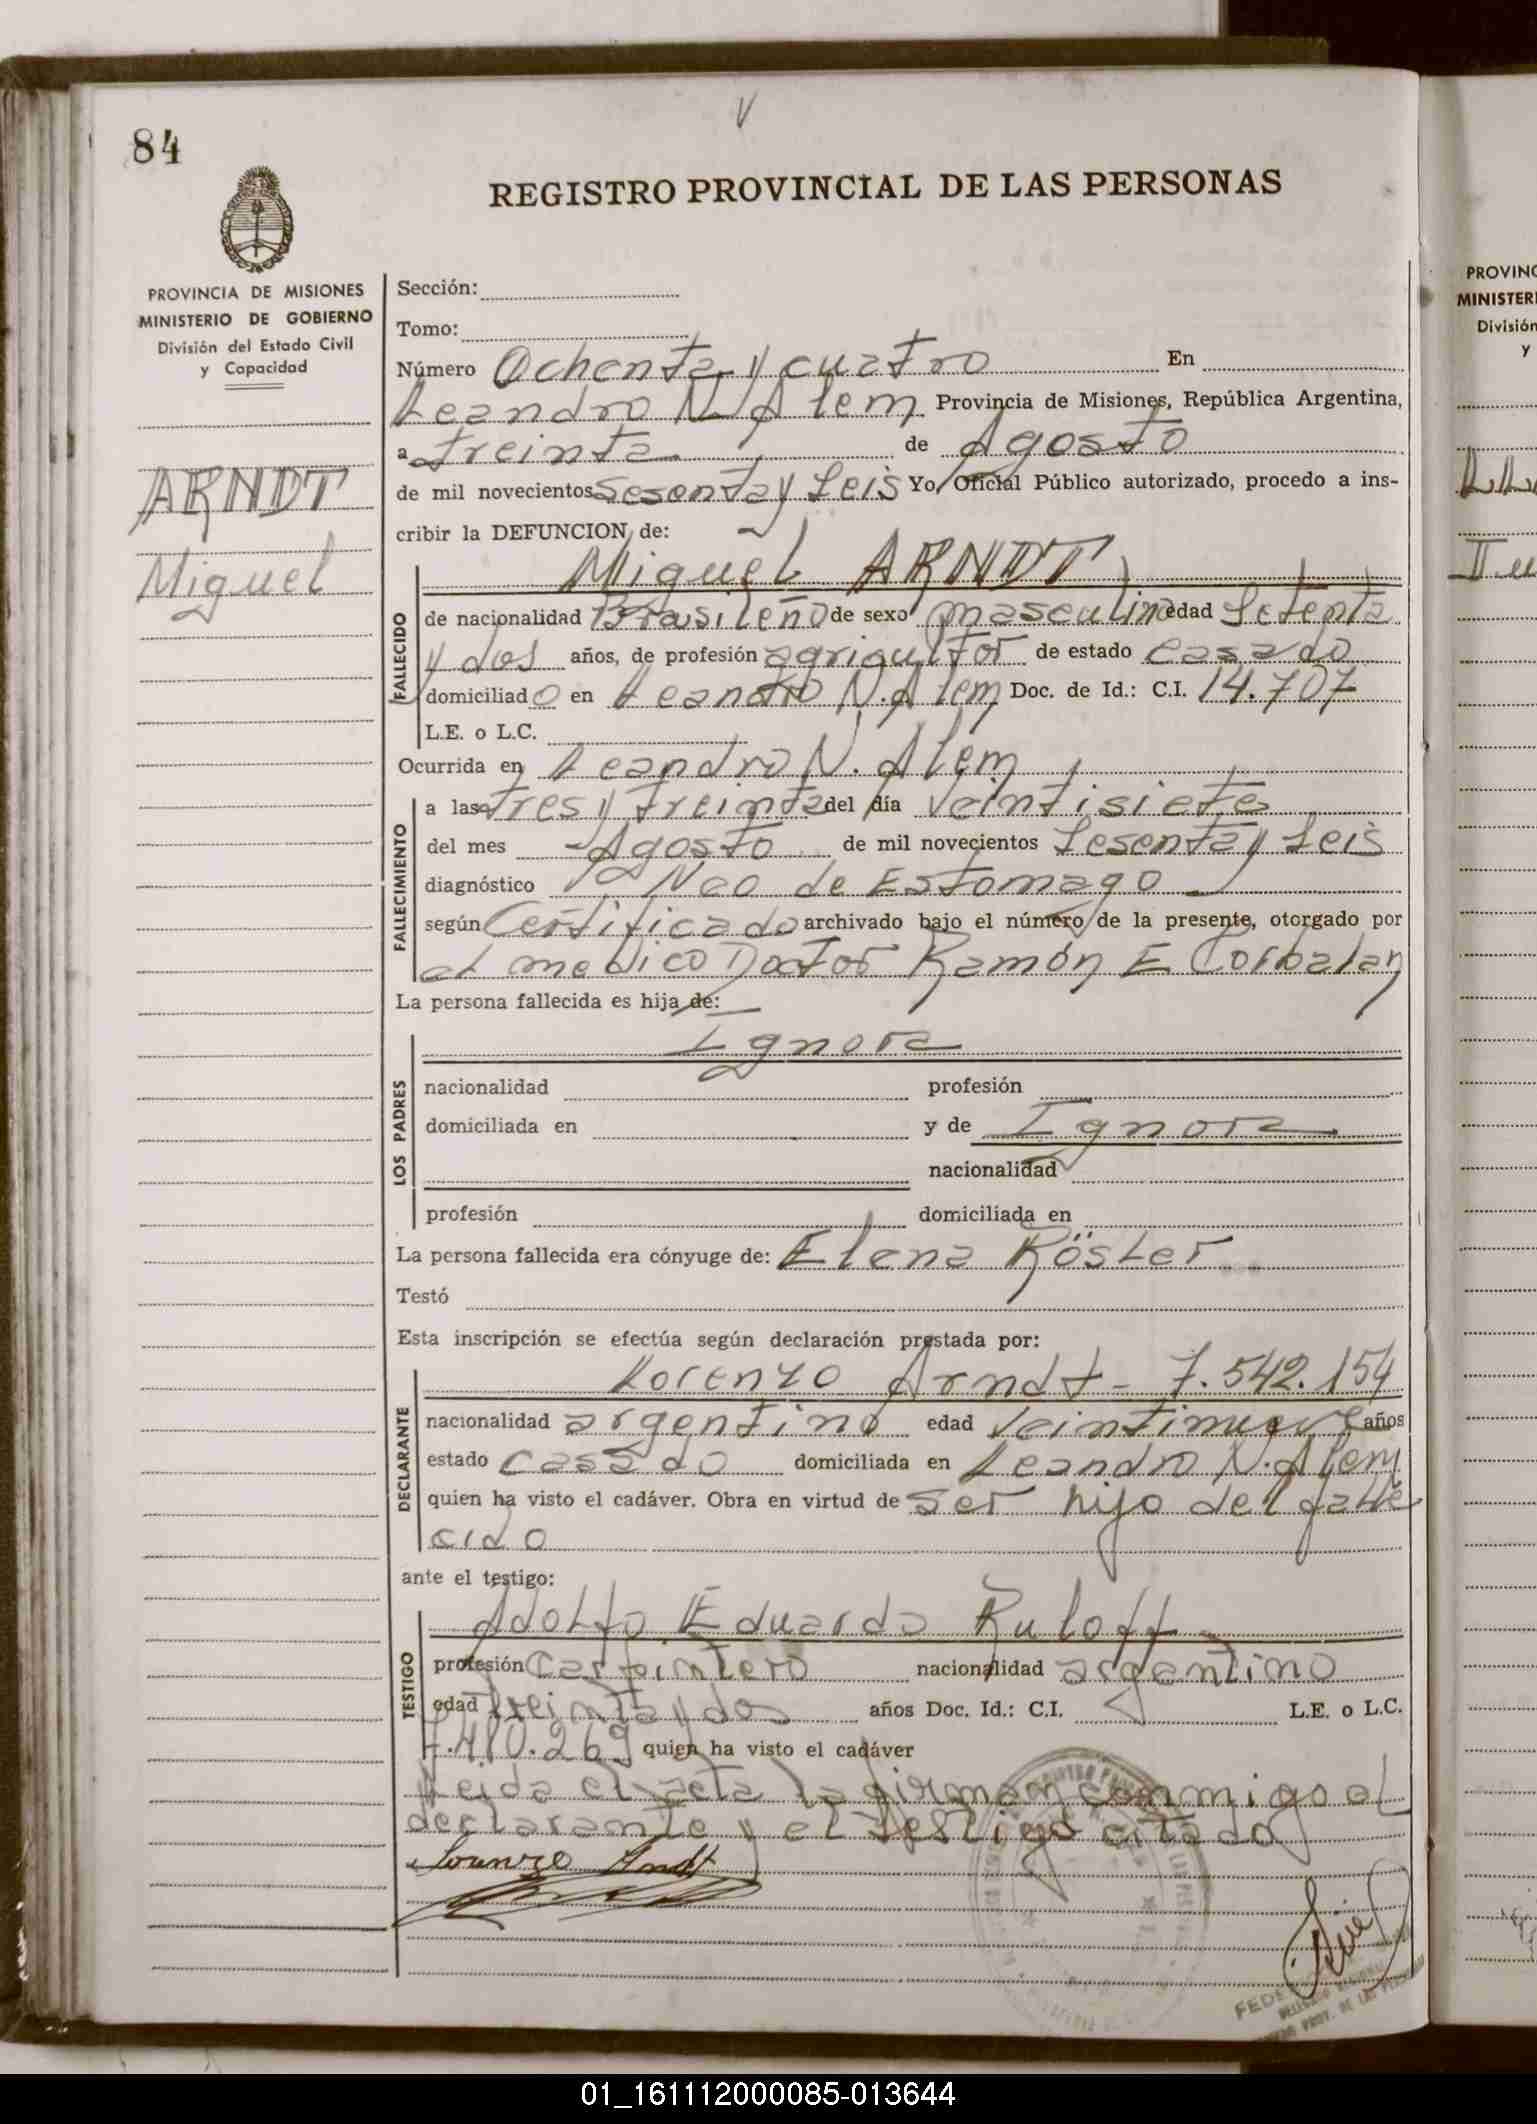 84
REGISTRO PROVINCIAL DE LAS PERSONAS
PROVINCIA DE MISIONES
MINISTERIO DE GOBIERNO
División del Estado Civil
y Capacidad
ARNDT
Miguel
Sección:
Tomo:
Número Ochenta y cuatro En
Leandro N. Alem Provincia de Misiones, República Argentina,
a treinta de Agosto
de mil novecientos Sesenta y Seis Yo, Oficial Público autorizado, procedo a ins-
cribir la DEFUNCION de:
Miguel ARNDT
FALLECIDO
de nacionalidad Brasileño de sexo masculino edad Setenta
y dos años, de profesión agricultor de estado casado
domiciliado en Leandro N. Alem Doc. de Id.: C.I. 14.707
L.E. o L.C.
Ocurrida en Leandro N. Alem
FALLECIMIENTO
a las tres y treinta del día Veintisiete
del mes Agosto de mil novecientos Sesenta y Seis
diagnóstico Neo de Estomago
según Certificado archivado bajo el número de la presente, otorgado por
el medico Doctor Ramón E Corbalan
La persona fallecida es hija de:
Ignora
LOS PADRES
nacionalidad profesión
domiciliada en y de Ignora
nacionalidad
profesión domiciliada en
La persona fallecida era cónyuge de: Elena Röster
Testó
Esta inscripción se efectúa según declaración prestada por:
Lorenzo Arndt - 7.542.154
DECLARANTE
nacionalidad argentino edad veintinueve años
estado casado domiciliada en Leandro N. Alem
quien ha visto el cadáver. Obra en virtud de ser hijo del falle
cido
ante el testigo:
Adolfo Eduardo Ruloff
TESTIGO
profesión carpintero nacionalidad argentino
edad treinta y dos años Doc. Id.: C.I. L.E. o L.C.
7.480.269 quien ha visto el cadáver
Leida el acta la firman conmigo el
declarante y el testigo citado
Lorenzo Arndt
PROVINC
MINISTER
División
y
01_161112000085-013644